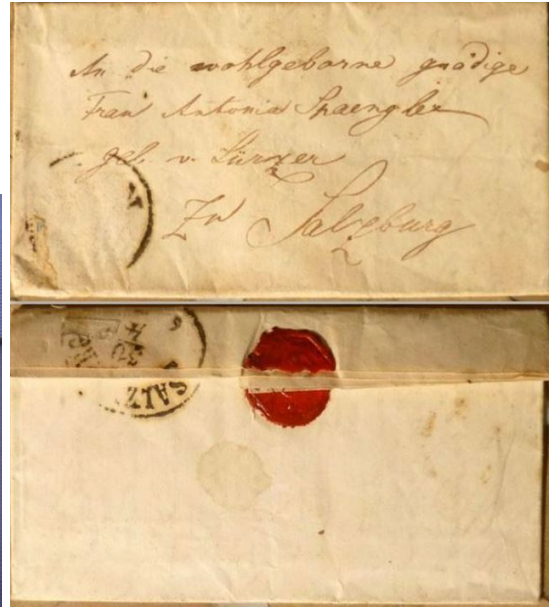 An die wohlgeborne gnädige
Frau Antonia Spaengler
geb. v. Lürzer
Zu Salzburg
30
SALZ